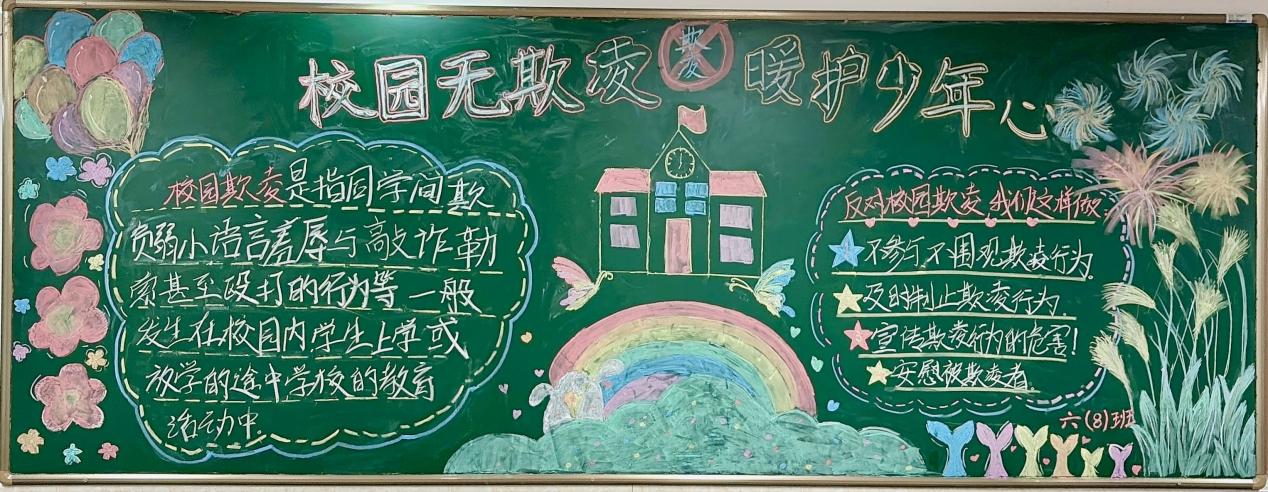 校园无欺凌 欺凌 暖护少年心
校园欺凌是指同学间欺
负弱小语言羞辱与敲诈勒
索甚至殴打的行为等一般
发生在校园内学生上学或
放学的途中学校的教育
活动中.
反对校园欺凌 我们这样做:
不参与,不围观欺凌行为.
及时制止欺凌行为.
宣传欺凌行为的危害!
安慰被欺凌者.
六(8)班